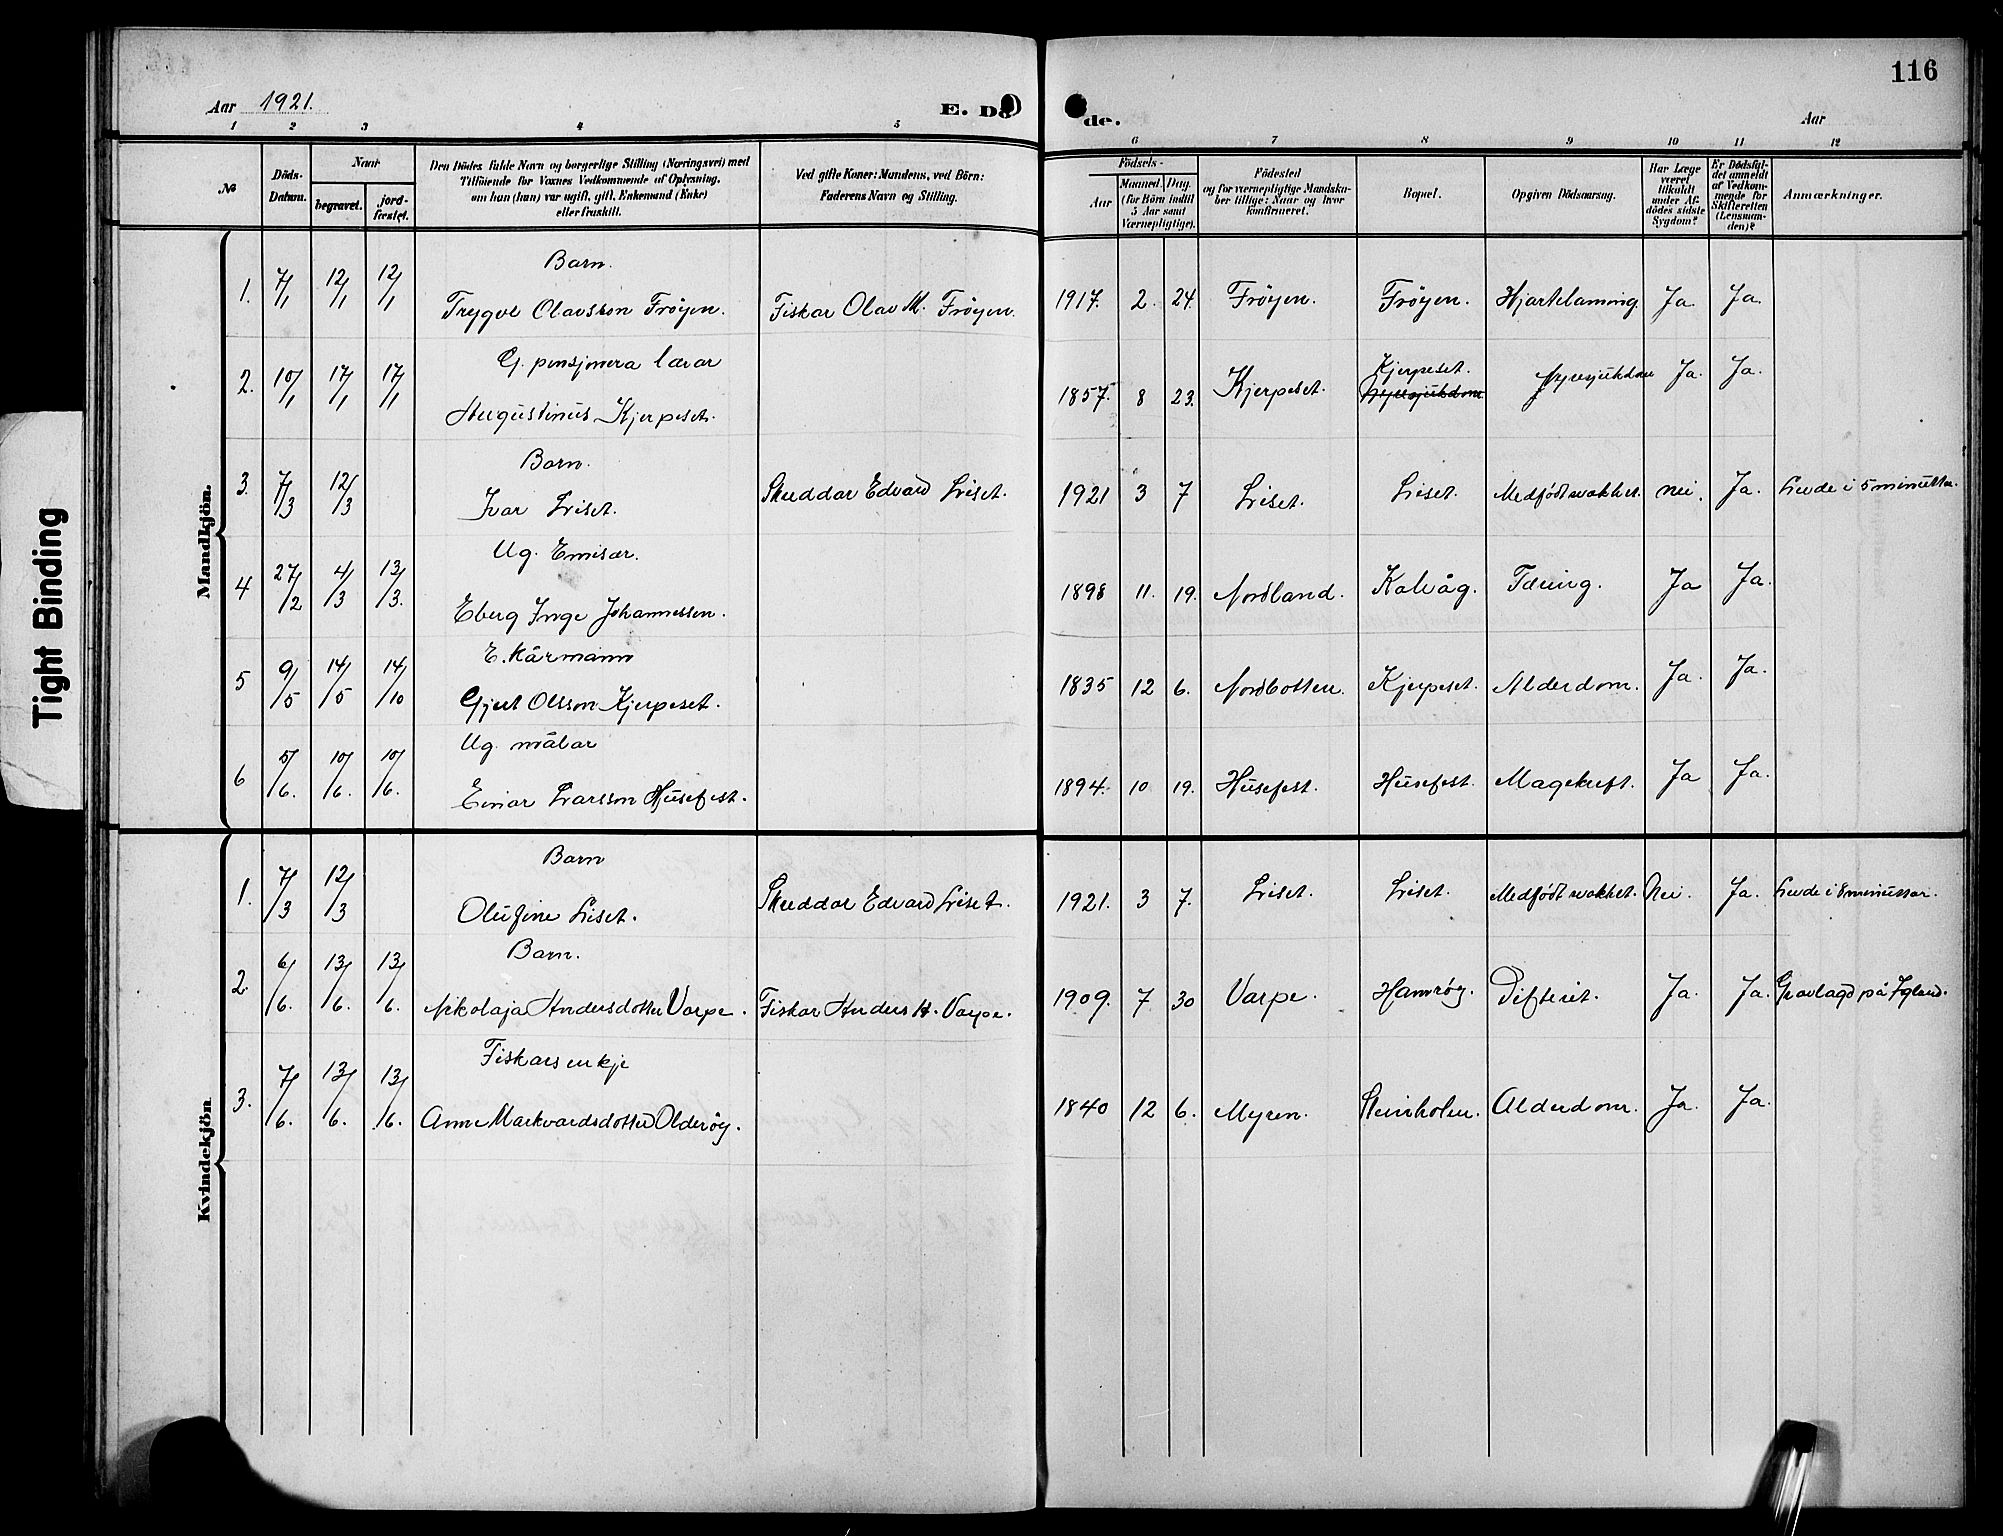 116
Aar 1921.
E. Døde.
Aar
1 2 3 4 5 6 7 8 9 10 11 12
№
Döds-Datum.
Naar
begravet.
jord-fæstet.
Den Dödes fulde Navn og borgerlige Stilling (Næringsvei) med
Tilföiende for Voxnes Vedkommende af Oplysning,
om han (hun) var ugift, gift, Enkemand (Enke)
eller fraskilt.
Ved gifte Koner: Mandens, ved Börn:
Faderens Navn og Stilling.
Födsels-
Aar
Maaned. Dag.
(for Börn indtil
5 Aar samt
Værnepligtige).
Födested
og for værnepligtige Mandska-
ber tillige: Naar og hvor
konfirmeret.
Bopæl.
Opgiven Dödsaarsag.
Har Læge
været
tilkaldt
under Af-
dödes sidste
Sygdom?
Er Dødsfal-
det anmeldt
af Vedkom-
mende for
Skifteretten
(Lensman-
den)?
Anmærkninger.
Mandkjön.
Barn.
1. 7/1 12/1 12/1 Trygve Olavsson Fröyen. Fiskar Olav M. Fröyen. 1917. 2. 24. Fröyen. Fröyen. Hjartelaming Ja. Ja.
G. pensjonera lærar
2. 10/1 17/1 17/1 Augustinus Kjerpeset. 1857. 8 23. Kjerpeset. Kjerpeset. Nyresjukdom Nyresjukdom Ja. Ja.
Barn.
3. 7/3 12/3 Ivar Liset. Skreddar Edvard Liset. 1921 3 7 Liset. Liset. Medfödt veikhet. Nei. Ja. Levde i 5 minuttar.
Ug. Emisær.
4 27/2 4/3 13/3. Eberg Inge Johannessen. 1898 11. 19. Nordland. Kalvåg. Tæring. Ja Ja.
E. kårmann
5 9/5 14/5 14/10 Gjert Olsson Kjerpeset. 1835 12 6. Nordbotten. Kjerpeset. Alderdom. Ja. Ja.
Ug. målar
6 5/6. 10/6. 10/6. Einar Larsson Husefest. 1894. 10 19. Husefest. Husefest. Magekreft. Ja Ja.
Kvindekjön
Barn
1. 7/3 12/3 Olufine Liset. Skreddar Edvard Liset. 1921. 3 7. Liset. Liset. Medfödt veikhet. Nei. Ja. Levde i 8 minuttar.
Barn.
2 6/6. 13/6. 13/6. Nikolaja Andersdotter Varpe. Fiskar Anders H. Varpe. 1909. 7 30 Varpe. Hamröy. Difterit. Ja. Ja. Gravlagd på Igland.
Fiskarsenkje
3. 7/6. 13/6. 13/6. Anne Markvardsdotter Olderöy. 1840 12 6. Myren. Steinholen. Alderdom. Ja. Ja.
Tight Binding